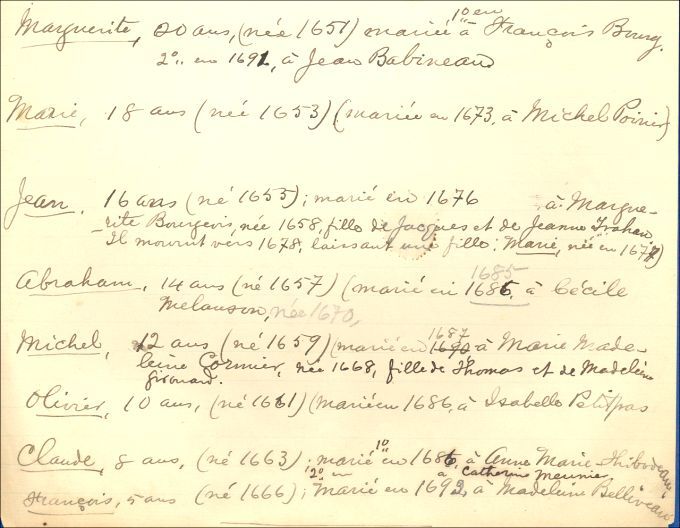 Marguerite, 20 ans, (née 1651) mariée 1º en à François Bourg.
2º. en 1692, à Jean Babineau
Marie, 18 ans (née 1653) (mariée en 1673, à Michel Poirier)
Jean, 16 ans (né 1655); marié en 1676 à Margue-
rite Bourgeois, née 1658, fille de Jacques et de Jeanne Trahan.
Il mourut vers 1678, laissant une fille: Marie, née en 1677)
1685
Abraham, 14 ans (né 1657) (marié en 1686, à Cécile
Melanson, née 1670,
1687
Michel, 12 ans (né 1659) (marié en 1690 à Marie Made-
leine Cormier, née 1668, fille de Thomas et de Madeleine
Girouard.
Olivier, 10 ans, (né 1661) (marié en 1686, à Isabelle Petitpas
Claude, 8 ans, (né 1663); marié 1º en 1686, à Anne Marie Thibodeau;
2º en à Catherine Meunier
François, 5 ans (né 1666); marié en 1692, à Madeleine Belliveau